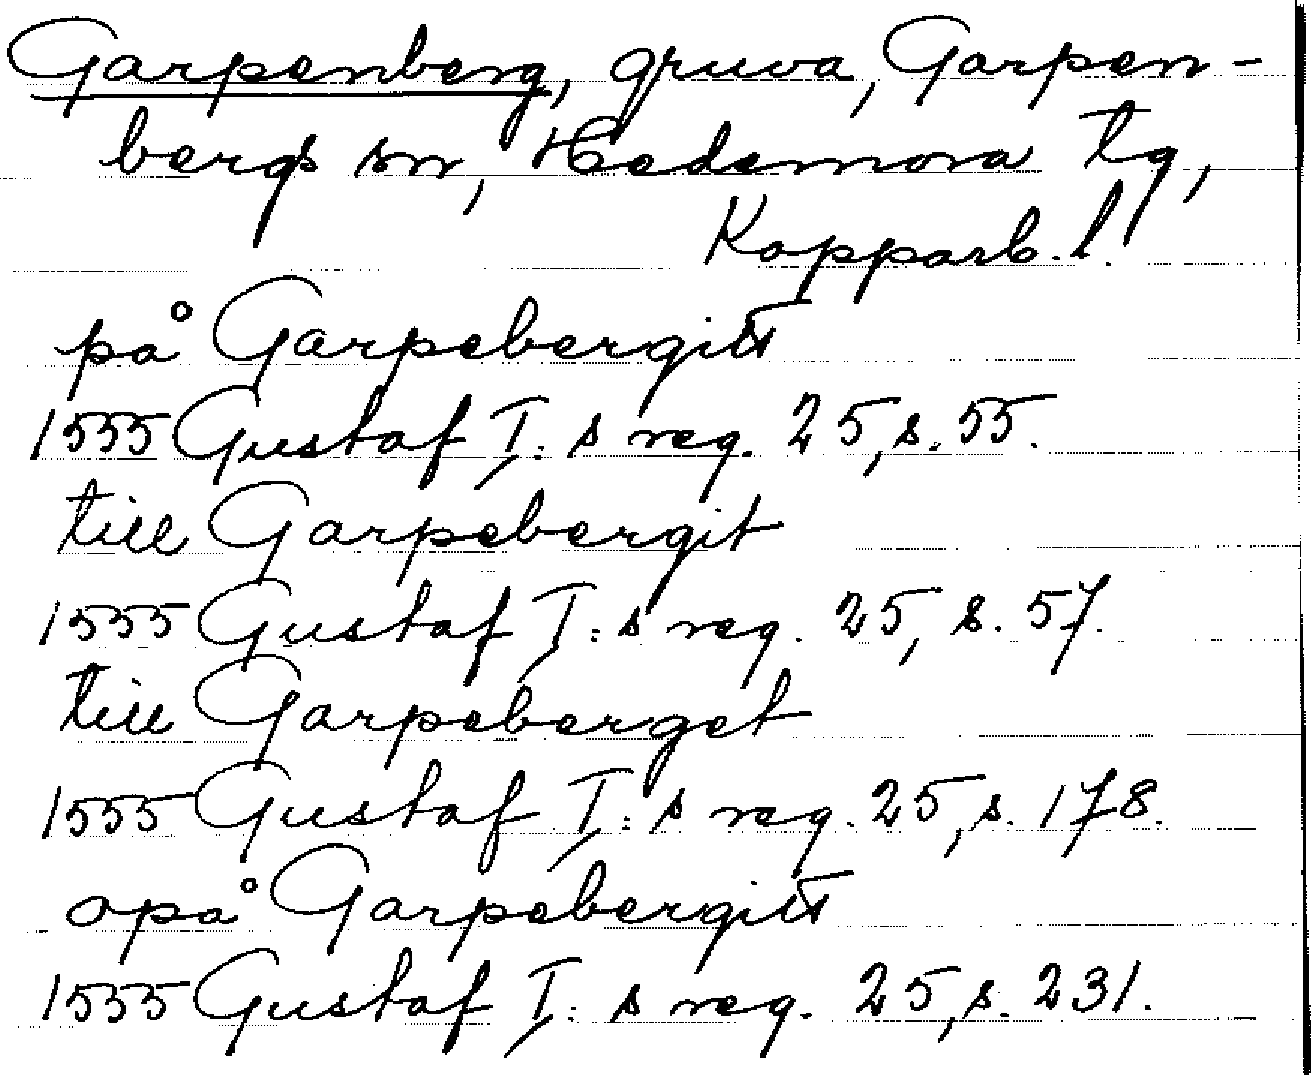 Garpenberg, gruva, Garpen-
bergs sn, Hedemora tg,
Kopparb. l.
på Garpebergitt
1555 Gustaf I: s reg. 25, s. 55.
till Garpebergit
1555 Gustaf I: s reg. 25, s. 57.
till Garpeberget
1555 Gustaf I: s reg. 25, s. 178.
opå Garpebergitt
1555 Gustaf I: s reg. 25, s. 231.